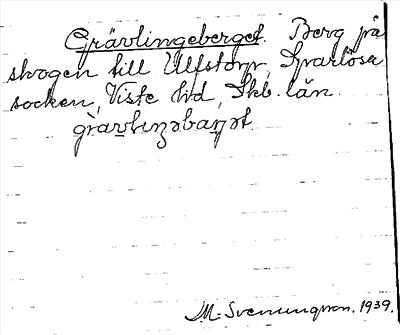 Grävlingeberget. Berg på
skogen till Ulfstorp, Sparlösa
socken, Viste hd, Skb. län.
M. Svenungsson. 1939.